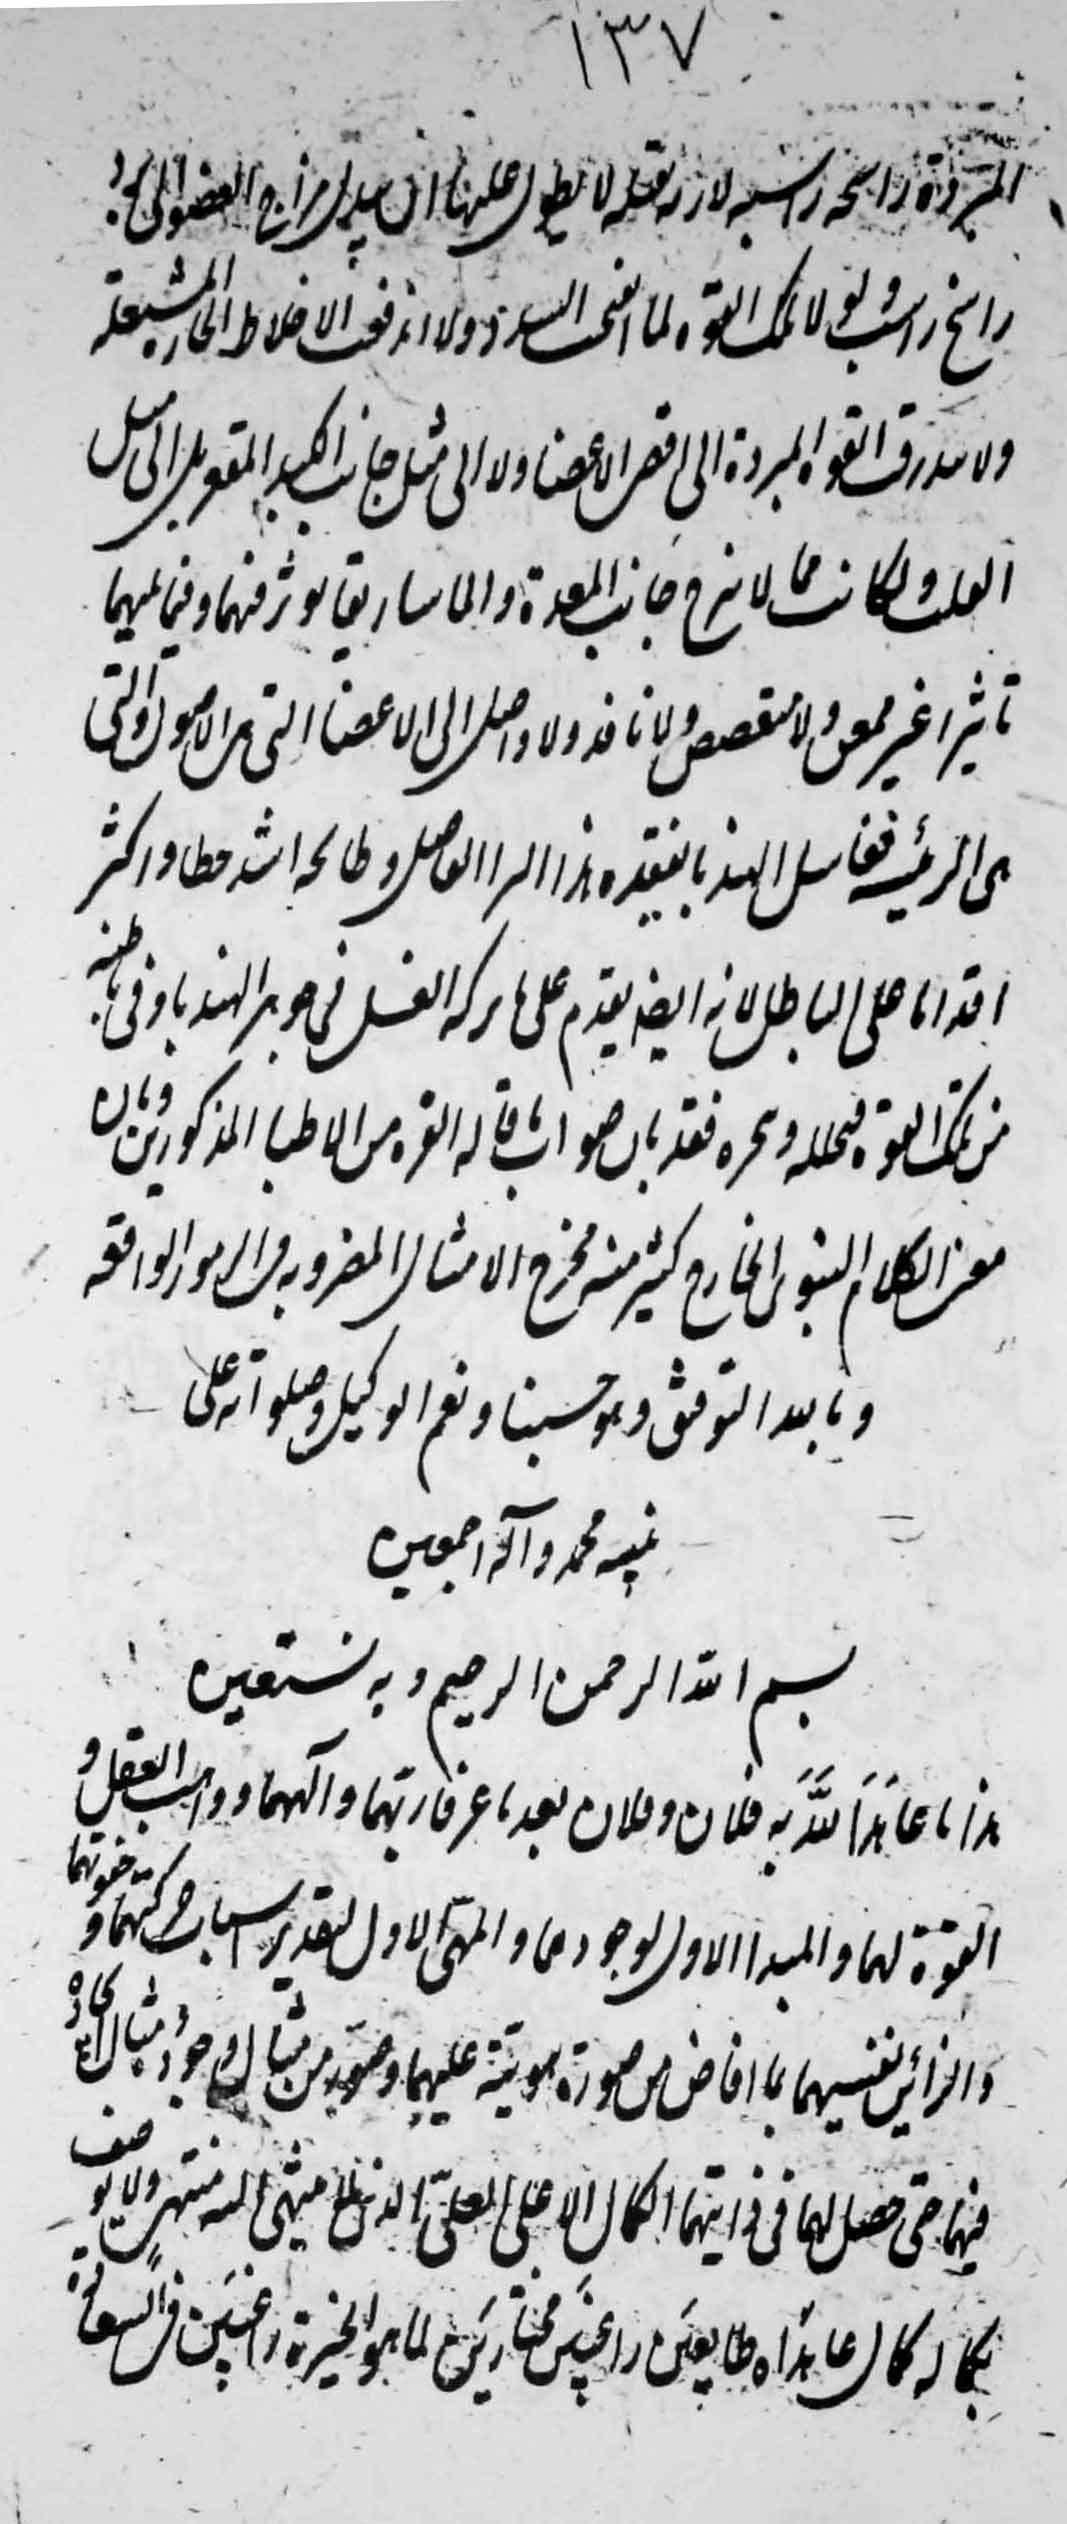 ١٣٧
المبردة راسخه راسبه لا يطول عليها ان يبدل مزاج العضو الى
راسخ راسب ولو لا تلك القوة لما انفتحت السدد ولا اندفعت الاخلاط الحارة المشتعلة
ولا القوة المبردة الى اقصى الاعضا ولا الى مثل جانب الكبد المقعر بل الى
القلب ولكانت مما لا يبرح جانب المعدة والماساريقا يوثر فيهما وفيما يليهما
تاثيرا غير ممعن ولا متقصص ولا نافد ولا واصل الى الاعضا التى هى الاصول والتى
هى الرئيسه فغاسل الهندبا يفقده هذا الفاضل وطابخه اشد خطا واكثر
اقداما على الباطل لانه ايضا يقدم على ما تركه الغسل فى جوهر الهندبا وفى باطنه
من تلك القوة فيحلله فقد بان صواب ما قاله من الاطبا المذكورين وبان
معنى الكلام النبوى الخارج كثير منه مخرج الامثال المضروبه فى الامور الواقعه
وبالله التوفيق وهو حسبنا ونعم الوكيل وصلواته على
نبيه محمد وآله اجمعين
بسم الله الرحمن الرحيم وبه نستعين
هذا ما عاهد الله به فلان وفلان بعد ما عرفا ربهما وآلههما وواهب العقل و
القوة لهما والمبدا الاول لوجودهما والمنتهى الاول لتقدير اسباب حركتهما و
نفسيهما بما افاض من صورة هويته عليهما وصور من مثال وجود مثال
فيهما حتى حصل لهما فى ذاتيهما الكمال الاعلى العلى الذى لا ينتهى اليه منتهى ولا يوصف
بكماله كمال عاهداه طايعين راغبين مختارين لما هو الخيرة راغبين فى السعادة